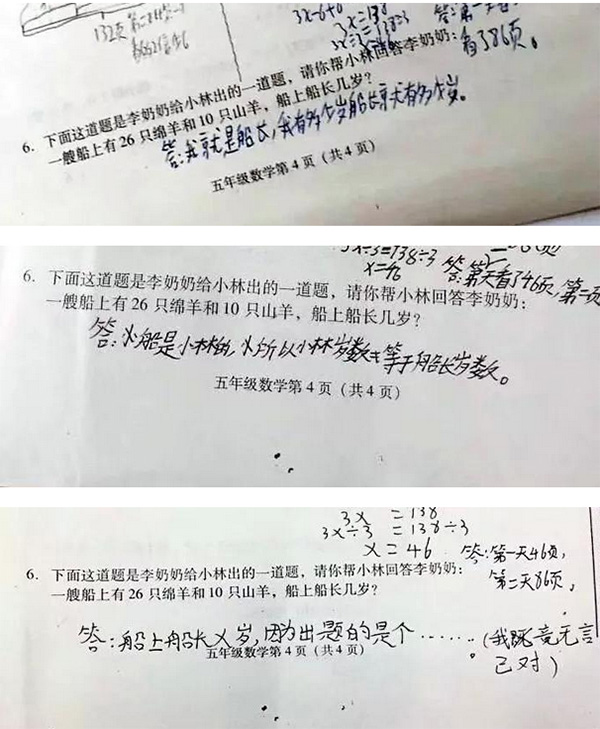 132页
3x-6+6
3x=138
3x÷3=138÷3
看了86页。
6. 下面这道题是李奶奶给小林出的一道题，请你帮小林回答李奶奶：
一艘船上有 26 只绵羊和 10 只山羊，船上船长几岁？
答：我就是船长，我有多少岁船长就有多少岁。
五年级数学第 4 页（共 4 页）
3x÷3=138÷3
x=46
答：第一天看了46页，第一页
6. 下面这道题是李奶奶给小林出的一道题，请你帮小林回答李奶奶：
一艘船上有 26 只绵羊和 10 只山羊，船上船长几岁？
答：船是小林的，所以小林岁数等于船长岁数。
五年级数学第 4 页（共 4 页）
3x = 138
3x÷3 = 138÷3
x = 46
答：第一天46页，
第二天86页。
6. 下面这道题是李奶奶给小林出的一道题，请你帮小林回答李奶奶：
一艘船上有 26 只绵羊和 10 只山羊，船上船长几岁？
答：船上船长X岁，因为出题的是个……。(我既竟无言
已对)
五年级数学第 4 页（共 4 页）